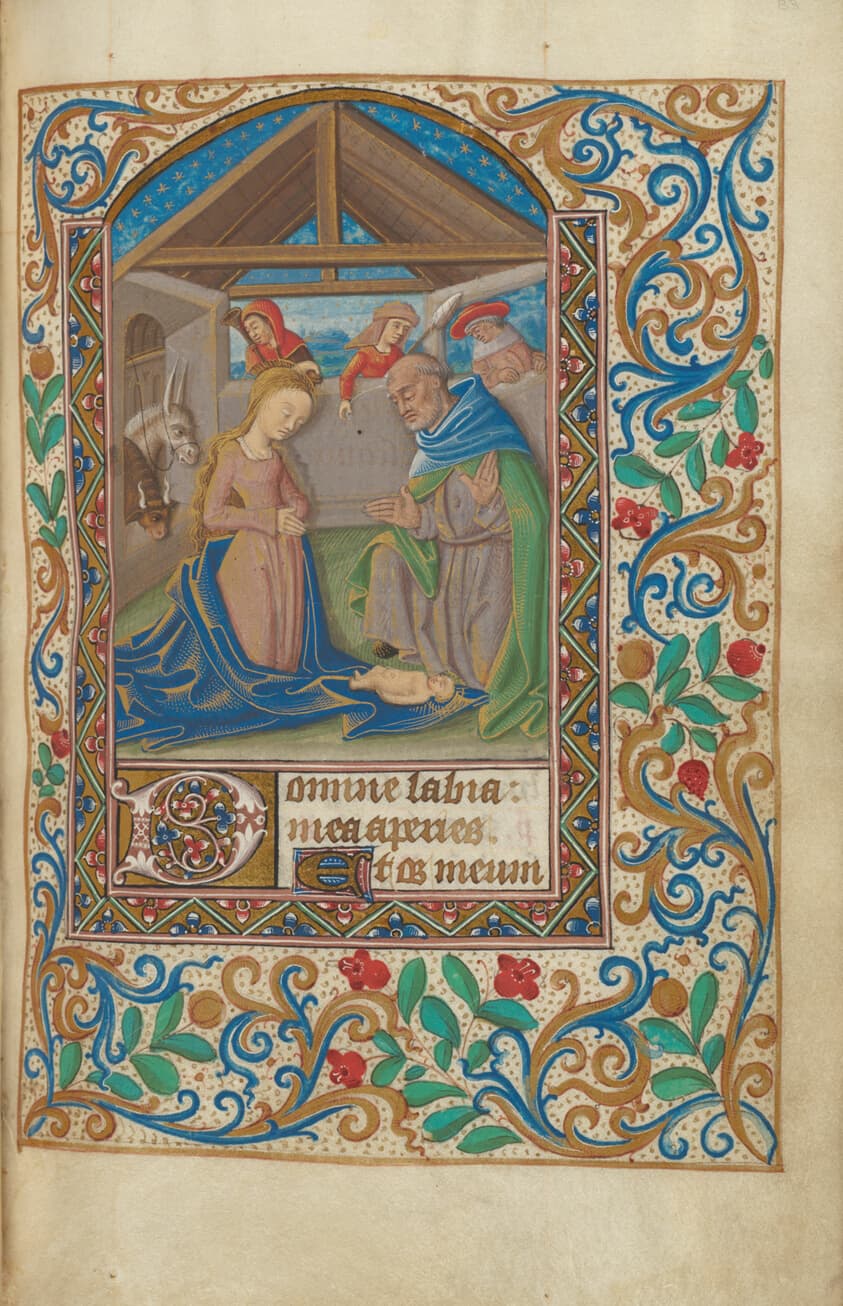 Domine labia:
mea aperies.
Et os meum